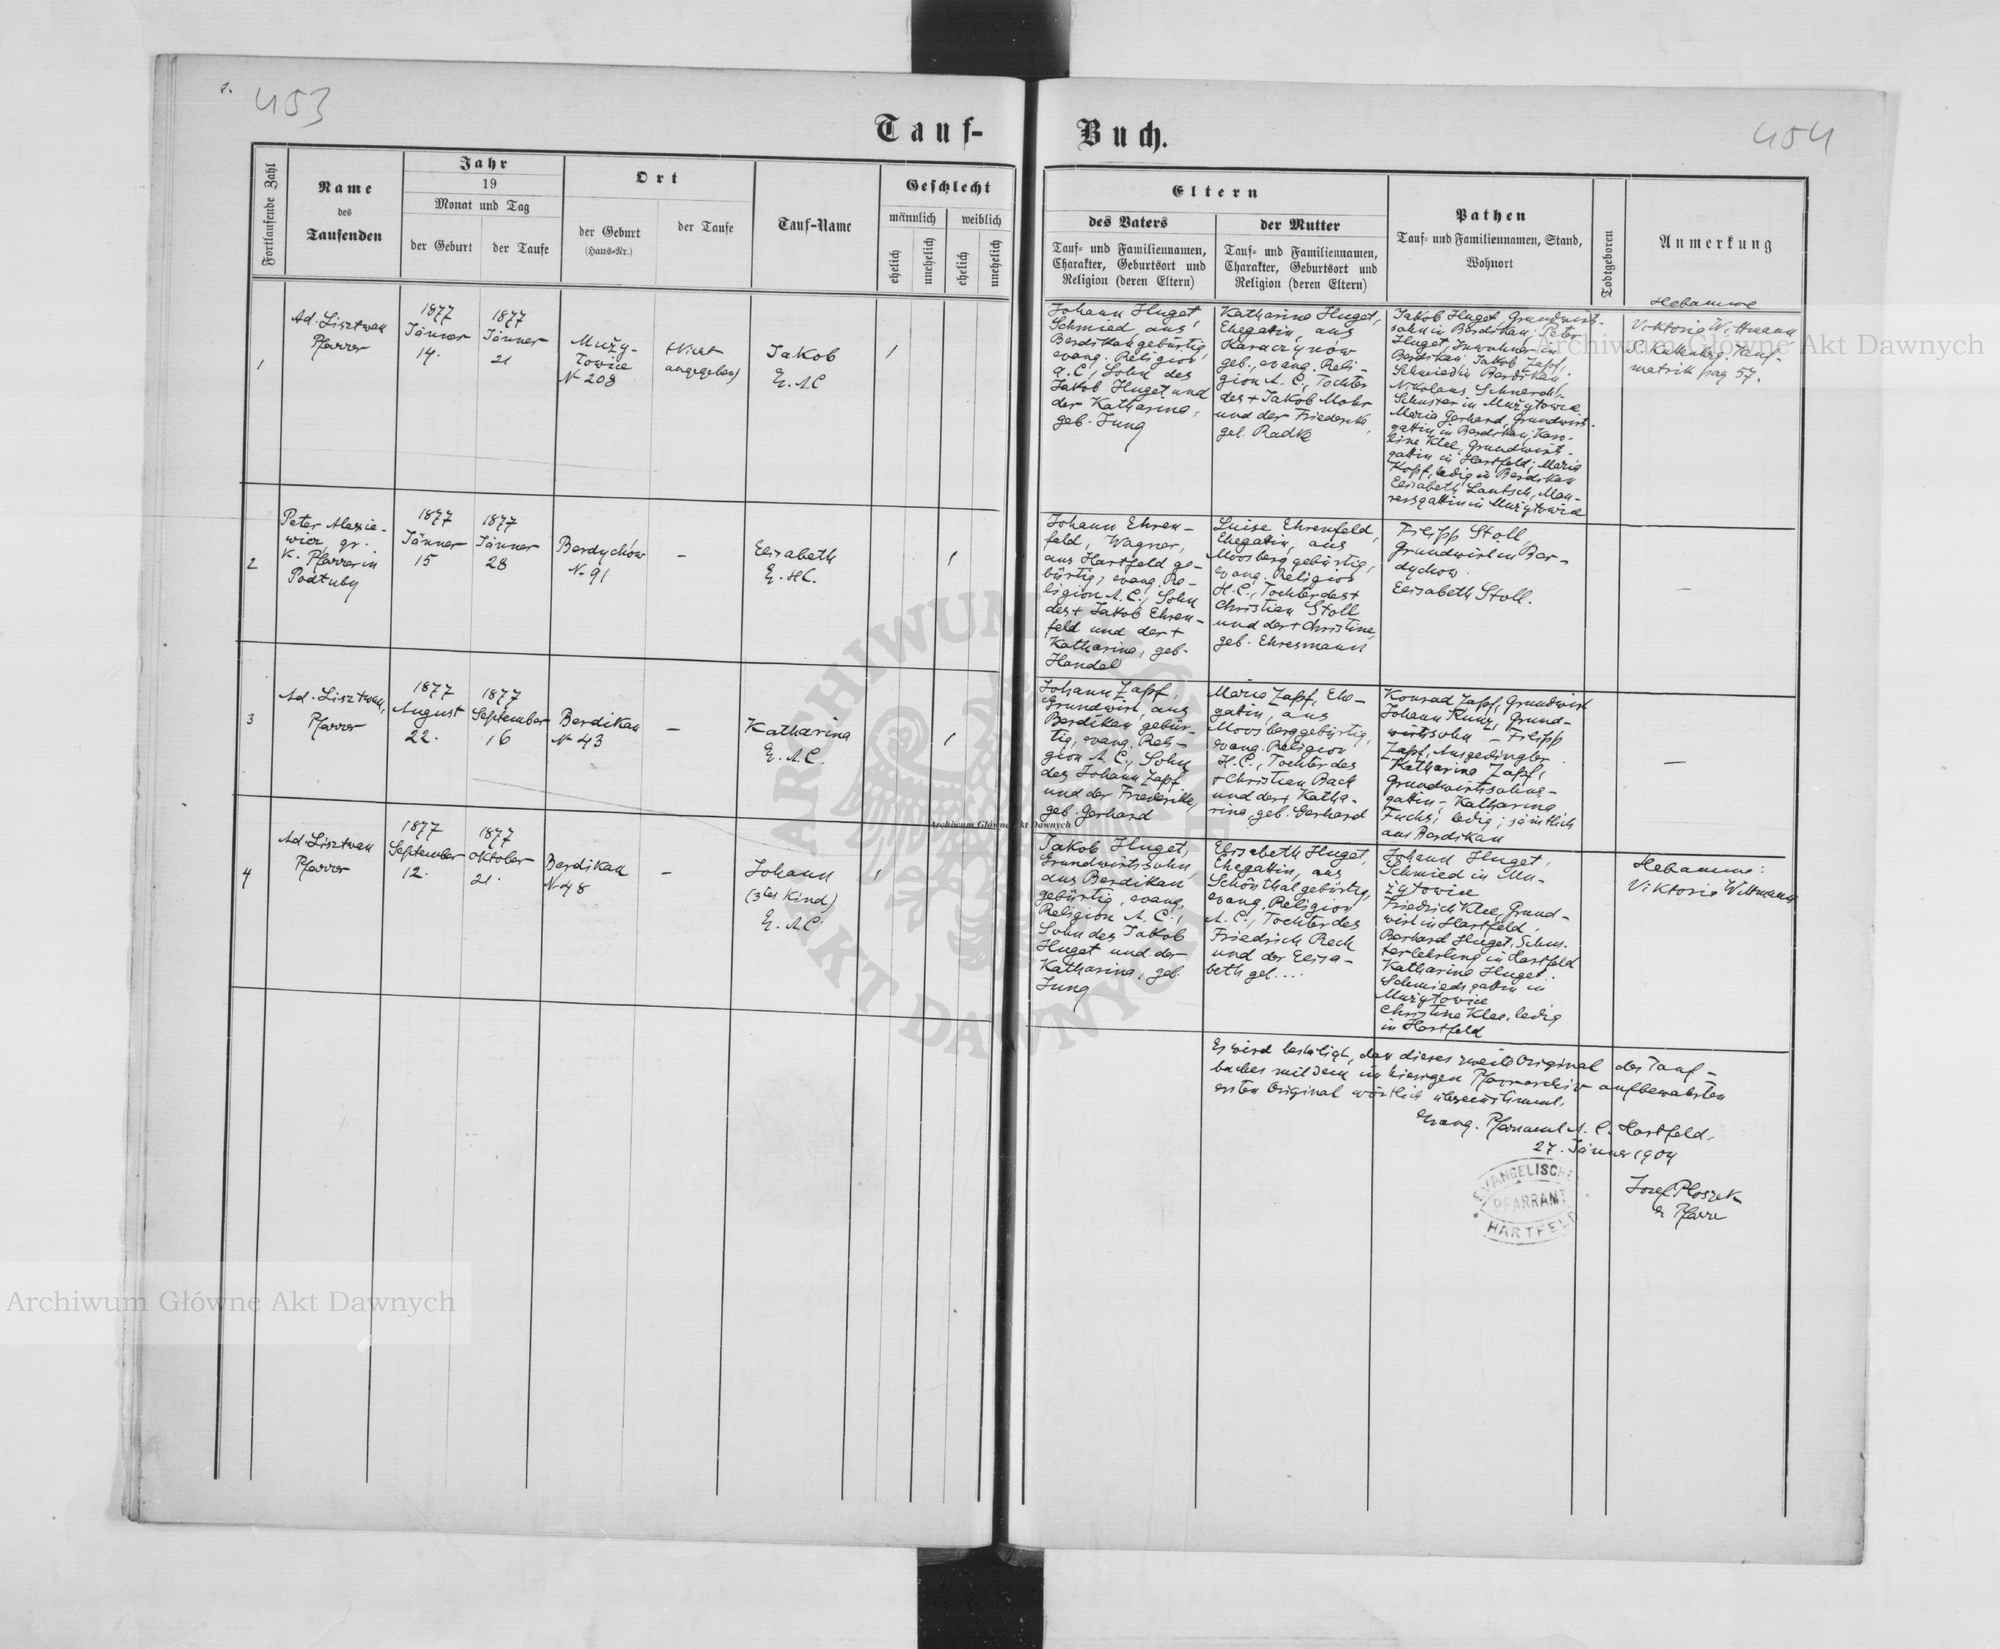 1.
453
454
Tauf-
Buch.
Fortlaufende Zahl
Name
des
Taufenden
Jahr
19
Monat und Tag
der Geburt
der Taufe
Ort
der Geburt
(Haus-Nr.)
der Taufe
Tauf-Name
Geschlecht
männlich
weiblich
ehelich
unehelich
ehelich
unehelich
Eltern
des Vaters
Tauf- und Familiennamen,
Charakter, Geburtsort und
Religion (deren Eltern)
der Mutter
Tauf- und Familiennamen,
Charakter, Geburtsort und
Religion (deren Eltern)
Pathen
Tauf- und Familiennamen, Stand,
Wohnort
Todtgeboren
Anmerkung
1
Ad. Lisztwan
Pfarrer
1877
Jänner
14.
1877
Jänner
21
Muży-
Towice
No 208
(Nicht
angegeben)
Jakob
E. A.C
1
Johann Huget,
Schmied, aus
Berdikau gebürtig,
evang. Religion
A.C., Sohn des
Jakob Huget und
der Katharina,
geb. Jung
Katharina Huget,
Ehegattin, aus
Karaczynów
geb., evang. Reli-
gion A. C., Tochter
des + Jakob Mohr
und der Friederike,
geb. Radke
Jakob Huget, Grundwirt-
sohn in Berdikau; Peter
Huget, Inwohner in
Berdikau; Jakob Zapf,
Schmied in Berdikau
Nikolaus
Schuster in Mużytowice
Maria Gerhard, Grundwirt-
gattin in Berdikau, Karo-
line Klee, Grundwirt-
gattin in Hartfeld; Maria
Kopf, ledig in Berdikau
Elisabeth Lautsch, Mau-
rersgattin in Mużytowice
Hebamme
Viktoria Wittmann
S. Tauf-
matrik pag 57.
2
Peter Alexie-
wicz, gr.
k. Pfarrer in
Podłuby
1877
Jänner
15
1877
Jänner
28
Berdychów
No 91
-
Elisabeth
E. H.C.
1
Johann Ehren-
feld, Wagner,
aus Hartfeld ge-
bürtig, evang. Re-
ligion A. C., Sohn
des + Jakob Ehren-
feld und der +
Katharina, geb.
Handel
Luise Ehrenfeld,
Ehegattin, aus
Moosberg gebürtig,
evang. Religion
H.C., Tochter des +
Christian Stoll
und der + Christine,
geb. Ehresmann
Filipp Stoll,
Grundwirt in Ber-
dychow.
Elisabeth Stoll.
-
3
Ad. Lisztwan,
Pfarrer
1877
August
22.
1877
September
16
Berdikau
No 43
-
Katharina
E. A.C.
1
Johann Zapf,
Grundwirt, aus
Berdikau gebür-
tig, evang. Reli-
gion A. C., Sohn
des Johann Zapf
und der Friederike,
geb. Gerhard
Maria Zapf, Ehe-
gattin, aus
Moosberg gebürtig,
evang. Religion
H.C., Tochter des
+ Christian Bach
und der + Katha-
rina, geb. Gerhard
Konrad Zapf, Grundwirt
Johann Kunz, Grund-
wirtssohn - Filipp
Zapf, Ausgedingler.
Katharina Zapf,
Grundwirtssohns-
gattin - Katharina
Fuchs, ledig; sämtlich
aus Berdikau
-
4
Ad. Lisztwan
Pfarrer
1877
September
12.
1877
Oktober
21.
Berdikau
No 48
-
Johann
(3tes Kind)
E. A.C
1
Jakob Huget,
Grundwirtssohn,
aus Berdikau
gebürtig, evang.
Religion A. C.,
Sohn des Jakob
Huget und der
Katharina, geb.
Jung
Elisabeth Huget,
Ehegattin, aus
Schönthal gebürtig,
evang. Religion
A. C., Tochter des
Friedrich Rech
und der Elisa-
beth geb. ...
Johann Huget,
Schmied in Mu-
żytowice
Friedrich Klee, Grund-
wirt in Hartfeld
Huget, Schus-
terlehrling in Hartfeld
Katharina Huget,
Schmieds gattin in
Mużytowice
Christine Klee, ledig
in Hartfeld
Hebamme:
Viktoria Wittmann
Es wird bestätigt, dass dieses zweite Original des Tauf-
buches mit dem im hiesigen Pfarrarchiv aufbewahrten
ersten Original wörtlich übereinstimmt.
Evang. Pfarramt A. C. Hartfeld,
27. Jänner 1904
Josef Ploszek
Pfarrer
EVANGELISCHES
PFARRAMT
HARTFELD
Archiwum Główne Akt Dawnych
Archiwum Główne Akt Dawnych
Archiwum Główne Akt Dawnych
ARCHIWUM GŁÓWNE AKT DAWNYCH